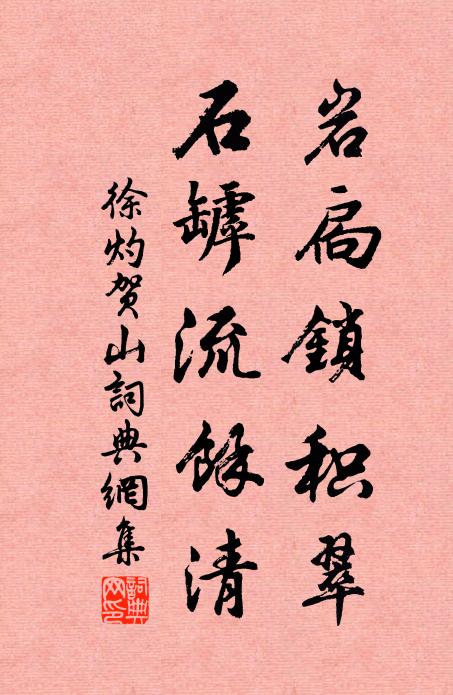 岩扃鎖积翠
石罅流餘清
徐灼贺山詞典網集
詞典網印